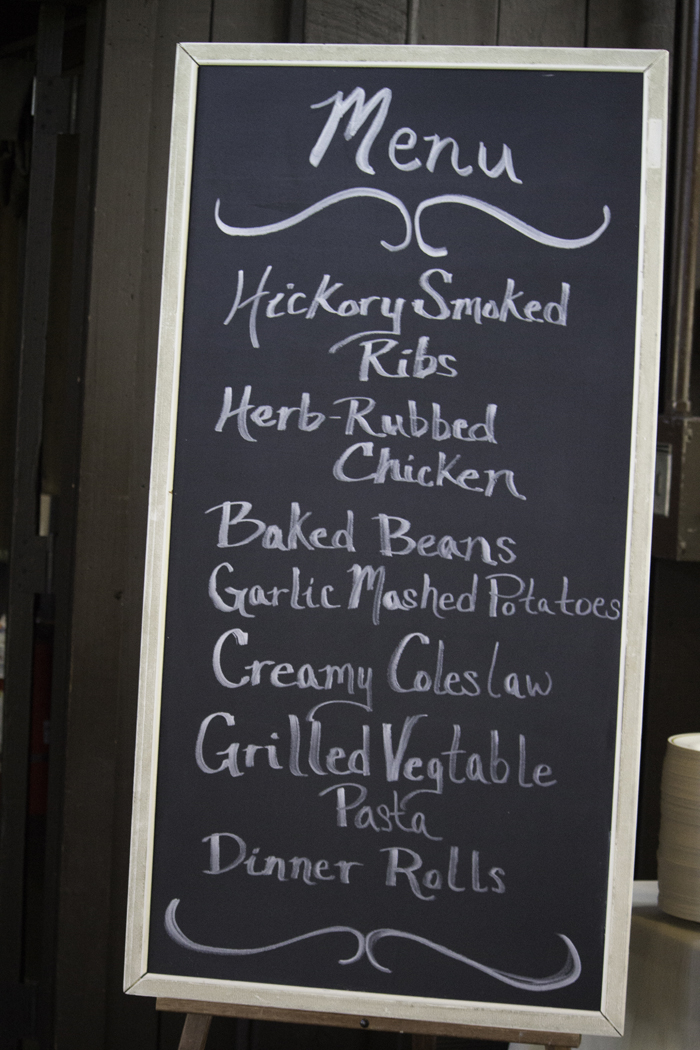 Menu
Hickory Smoked
Ribs
Herb-Rubbed
Chicken
Baked Beans
Garlic Mashed Potatoes
Creamy Coleslaw
Grilled Vegtable
Pasta
Dinner Rolls